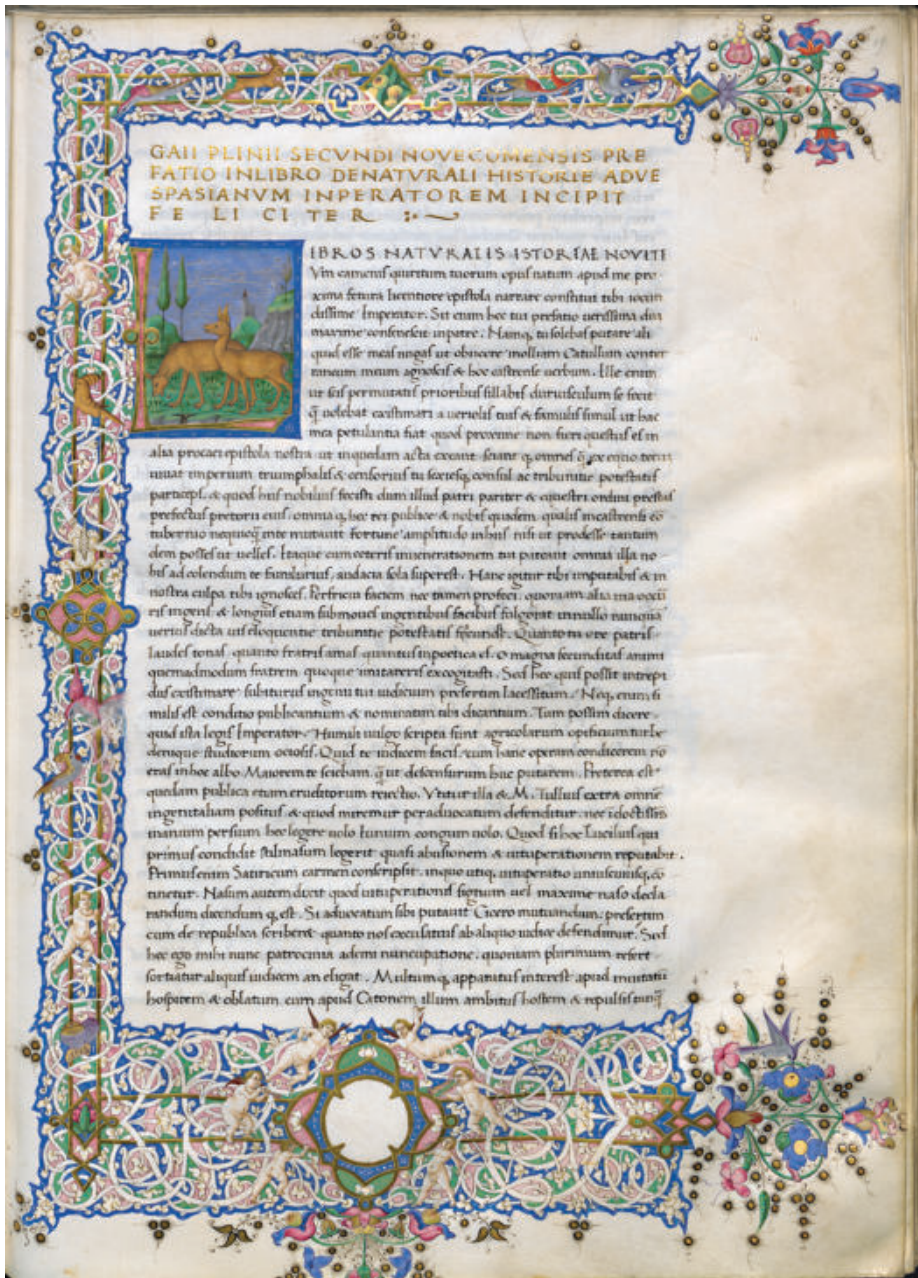 GAII PLINII SECVNDI NOVECOMENSIS PRE
FATIO INLIBRO DENATVRALI HISTORIE ADVE
SPASIANVM INPERATOREM INCIPIT
FE LI CI TER
IBROS NATVRALIS ISTORIAE NOVITI
Vm camenis quiritum tuorum opus natum apud me pro
xima fetura licentiore epistola narrare constitui tibi iocun
dissime Imperator. Sit enim hec tui prefatio uerissima dum
maxime consenescit inpatre. Namq, tu solebas putare ali
quid esse meas nugas ut obiicere mollium Catullum conter
raneum meum agnoscis & hoc castrense uerbum. Ille enim
ut scis permutatis prioribus sillabis duriusculum se fecit
q̃ uolebat existimari a ueriolis tuis & famulis simul ut hac
mea petulantia fiat quod proxime non fieri questus es in
alia procaci epistola nostra ut inquedam acta exeant sciant q, omnes q̃ ex equo tecum
uiuat imperium triumphalis & censorius tu sexiesq, consul ac tribunitie potestatis
particeps. & quod hiis nobilius fecisti dum illud patri pariter & equestri ordini prestas
prefectus pretorii eius. omnia q, hec rei publice & nobis quidem qualis incastrensi co
tubernio nequicq̃ inte mutauit fortune amplitudo inhiis nisi ut prodesse tantum
dem posses ut uelles. Itaque cum ceteris inuenerationem tui pateant omnia illa no
bis ad colendum te familarius, audacia sola superest. Hanc igitur tibi imputabis & in
nostra culpa tibi ignosces. Perfricui faciem nec tamen profeci. quoniam alia uia occu
ris ingens. & longius etiam submoues ingentibus facibus fulgorat innullo nunquã
uerius dicta uis eloquentie tribunitie potestatis facundie. Quanto tu ore patris
laudes tonas. quanto fratris amas quantus inpoetica es. O magna fecunditas animi
quemadmodum fratrem quoque imitareris excogitasti. Sed hec quis possit intrepi
dus existimare subiturus ingenii tui iudicium presertim lacessitum. Neq, enim si
milis est conditio publicantium & nominatim tibi dicantium. Tum possim dicere
quid ista legis Imperator. Humili uulgo scripta sunt agricolarum opificum turbe
denique studiorum ociosis. Quid te iudicem facis. cum hanc operam condicerem nõ
eras inhoc albo. Maiorem te sciebam. q̃ ut descensurum huc putarem. Preterea est
quedam publica etiam eruditorum reiectio. Vtitur illa & M. Tullius extra omnẽ
ingenii aliam positus & quod miremur per aduocatum defenditur. nec i doctissim
manium persium hec legere uolo Iunium congum uolo. Quod si hoc Lucilius qui
primus condidit stilnasum legerit quasi abusionem & uituperationem reputabit.
Primus enim Satiricum carmen conscripsit. inquo utiq, uituperatio uniuscuiusq, cõ
tinetur. Nasum autem dixit quod uituperationis signum uel maxime naso decla
randum dicendum q, est. Si aduocatum sibi putauit Cicero mutuandum. presertim
cum de republica scriberet quanto nos excusatius ab aliquo iudice defendimur. Sed
hec ego mihi nunc patrocinia ademi nuncupatione. quoniam plurimum refert
sortiatur aliquis iudicem an eligat. Multumq, apparatus interest. apud inuitatũ
hospitem & oblatum. cum apud Catonem illum ambitus hostem & repulsis tanq̃